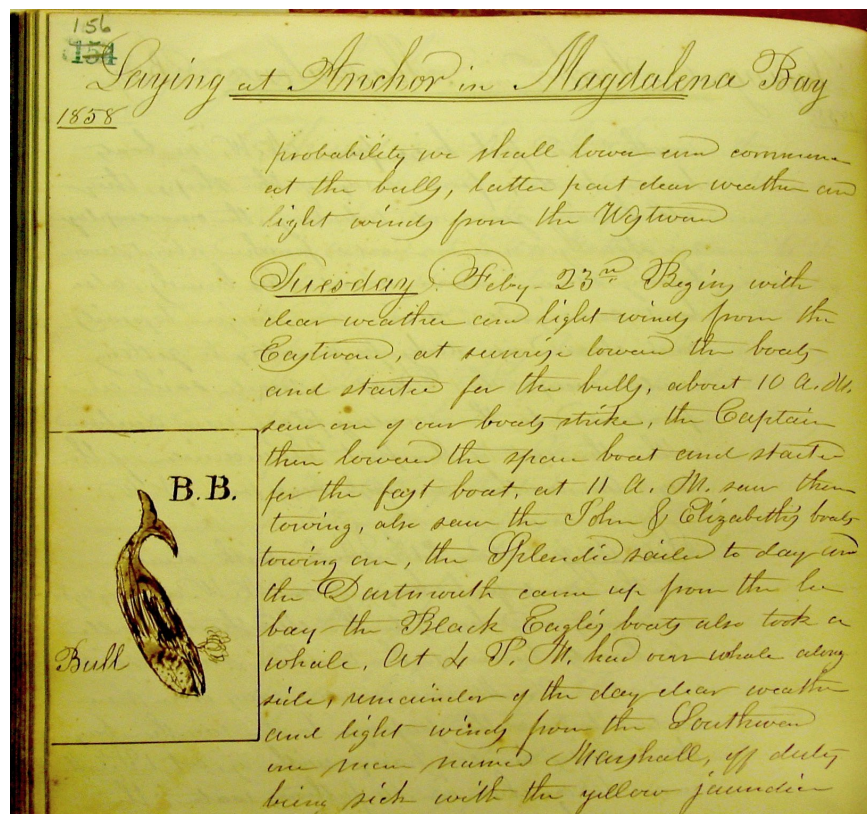 156
154
Laying at Anchor in Magdalena Bay
1858
probability we shall lower and commence
at the bulls, latter part clear weather and
light winds from the Westward
Tuesday. Feby 23rd Begins with
clear weather and light winds from the
Eastward, at sunrise lowered the boats
and started for the bulls, about 10 A.M.
saw one of our boats strike, the Captain
then lowered the spare boat and started
for the fast boat, at 11 A. M. saw them
towing, also saw the John & Elizabeth's boats
towing one, the Splendid sailed to day and
the Dartmouth came up from the lee
bay the Black Eagle's boats also took a
whale. At 4 P. M. had our whale along
side, remainder of the day clear weather
and light winds from the Southward
one man named Marshall, off duty
being sick with the yellow jaundice
B.B.
Bull